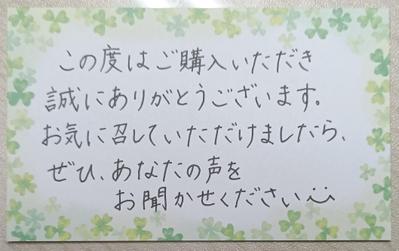 この度はご購入いただき
誠にありがとうございます。
お気に召していただけましたら、
ぜひ、あなたの声を
お聞かせください